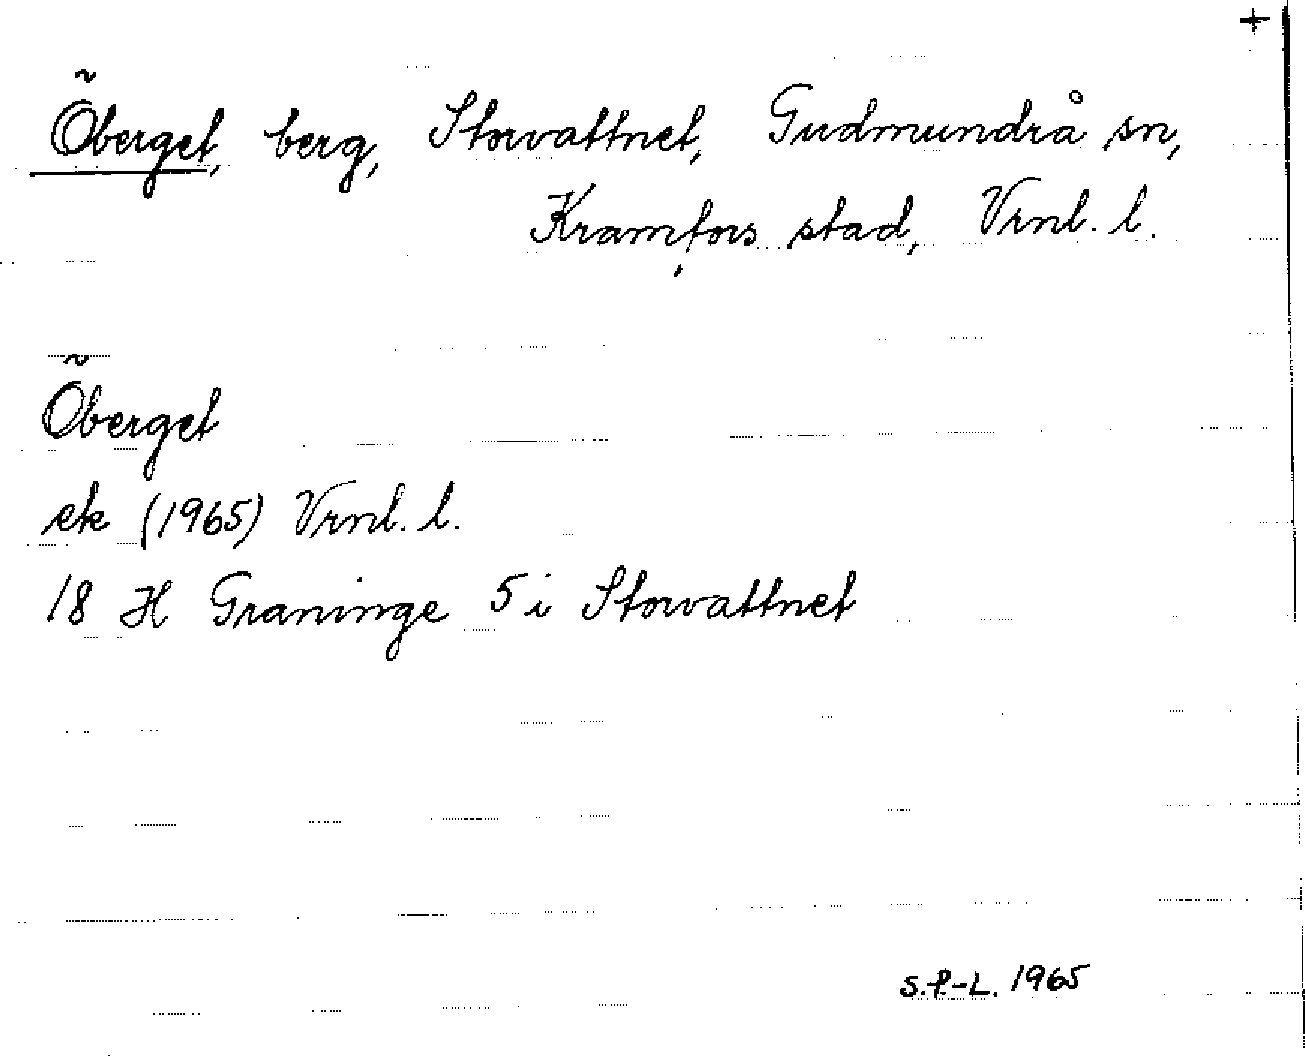 +
Öberget, berg, Storvattnet, Gudmundrå sn,
Kramfors stad, Vrnl. l.
Öberget
ek (1965) Vrnl. l.
18 H Graninge 5 i Storvattnet
S.P-L. 1965